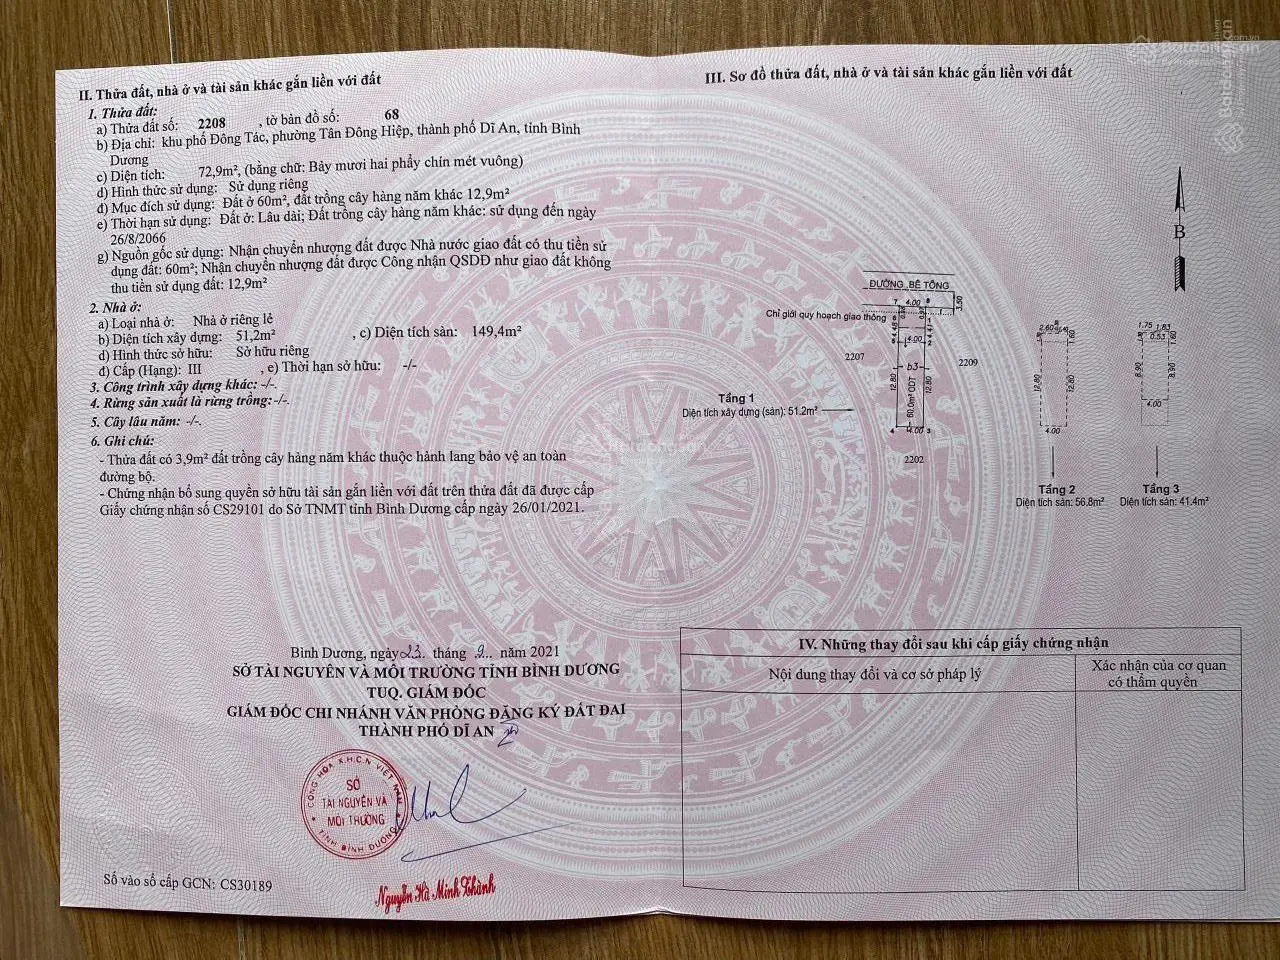 II. Thửa đất, nhà ở và tài sản khác gắn liền với đất
1. Thửa đất:
a) Thửa đất số: 2208 , tờ bản đồ số: 68
b) Địa chỉ: khu phố Đông Tác, phường Tân Đông Hiệp, thành phố Dĩ An, tỉnh Bình
Dương
c) Diện tích: 72,9m², (bằng chữ: Bảy mươi hai phẩy chín mét vuông)
d) Hình thức sử dụng: Sử dụng riêng
đ) Mục đích sử dụng: Đất ở 60m², đất trồng cây hàng năm khác 12,9m²
e) Thời hạn sử dụng: Đất ở: Lâu dài; Đất trồng cây hàng năm khác: sử dụng đến ngày
26/8/2066
g) Nguồn gốc sử dụng: Nhận chuyển nhượng đất được Nhà nước giao đất có thu tiền sử
dụng đất: 60m²; Nhận chuyển nhượng đất được Công nhận QSDĐ như giao đất không
thu tiền sử dụng đất: 12,9m²
2. Nhà ở:
a) Loại nhà ở: Nhà ở riêng lẻ
b) Diện tích xây dựng: 51,2m² , c) Diện tích sàn: 149,4m²
d) Hình thức sở hữu: Sở hữu riêng
đ) Cấp (Hạng): III , e) Thời hạn sở hữu: -/-
3. Công trình xây dựng khác: -/-.
4. Rừng sản xuất là rừng trồng:-/-.
5. Cây lâu năm: -/-.
6. Ghi chú:
- Thửa đất có 3,9m² đất trồng cây hàng năm khác thuộc hành lang bảo vệ an toàn
đường bộ.
- Chứng nhận bổ sung quyền sở hữu tài sản gắn liền với đất trên thửa đất đã được cấp
Giấy chứng nhận số CS29101 do Sở TNMT tỉnh Bình Dương cấp ngày 26/01/2021.
Bình Dương, ngày 23 tháng 2 năm 2021
SỞ TÀI NGUYÊN VÀ MÔI TRƯỜNG TỈNH BÌNH DƯƠNG
TUQ. GIÁM ĐỐC
GIÁM ĐỐC CHI NHÁNH VĂN PHÒNG ĐĂNG KÝ ĐẤT ĐAI
THÀNH PHỐ DĨ AN
CỘNG HÒA X.H.C.N VIỆT NAM
SỞ
TÀI NGUYÊN VÀ
MÔI TRƯỜNG
TỈNH BÌNH DƯƠNG
Nguyễn Hà Minh Thành
Số vào sổ cấp GCN: CS30189
III. Sơ đồ thửa đất, nhà ở và tài sản khác gắn liền với đất
B
ĐƯỜNG BÊ TÔNG
7 4.00 8
3.50
Chỉ giới quy hoạch giao thông
4.48
4.41
4.00
2207
2209
b3
12.80
12.80
60.0m² ODT
4 4.00 3
2202
Tầng 1
Diện tích xây dựng (sàn): 51.2m²
2.60
1.60
12.80
12.80
4.00
Tầng 2
Diện tích sàn: 56.8m²
1.75 1.83
0.53
1.60
8.90
8.90
4.00
Tầng 3
Diện tích sàn: 41.4m²
IV. Những thay đổi sau khi cấp giấy chứng nhận
Nội dung thay đổi và cơ sở pháp lý
Xác nhận của cơ quan
có thẩm quyền
Batdongsan